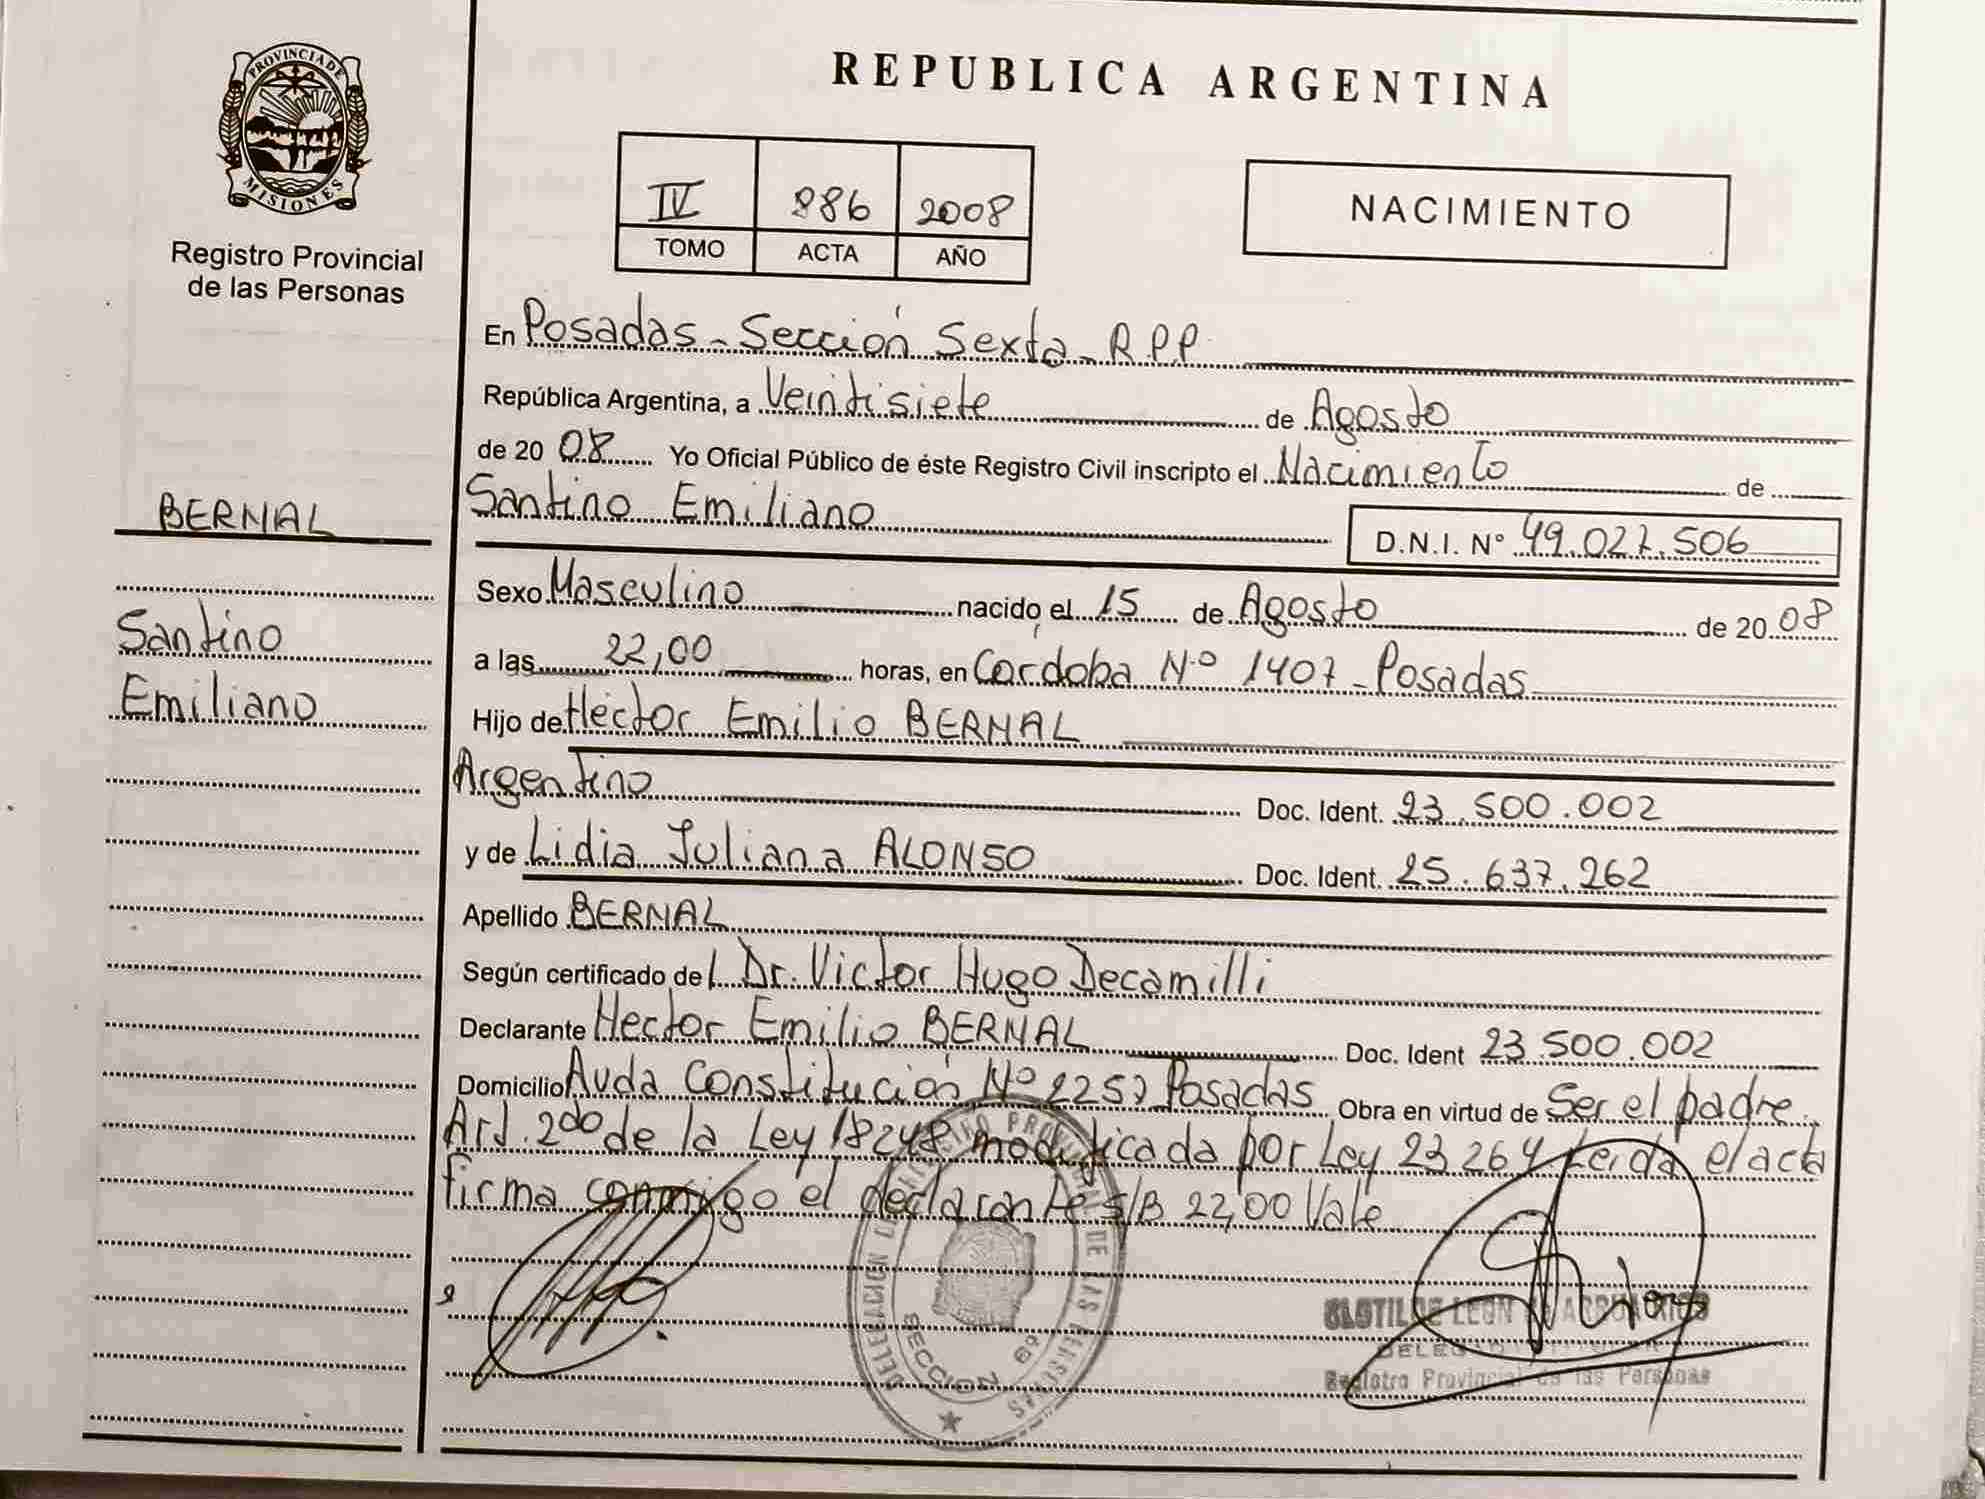 PROVINCIA DE
MISIONES
Registro Provincial
de las Personas
BERNAL
Santino
Emiliano
REPUBLICA ARGENTINA
IV 886 2008
TOMO ACTA AÑO
NACIMIENTO
En Posadas - Sección Sexta - R.P.P.
República Argentina, a Veintisiete de Agosto
de 20 08 Yo Oficial Público de éste Registro Civil inscripto el Nacimiento de
Santino Emiliano D.N.I. N° 49.027.506
Sexo Masculino nacido el 15 de Agosto de 20 08
a las 22,00 horas, en Cordoba Nº 1407 - Posadas
Hijo de Héctor Emilio BERNAL
Argentino Doc. Ident. 23.500.002
y de Lidia Juliana ALONSO Doc. Ident. 25.637.262
Apellido BERNAL
Según certificado del Dr. Victor Hugo Decamilli
Declarante Hector Emilio BERNAL Doc. Ident 23.500.002
Domicilio Avda Constitución Nº 2257 Posadas Obra en virtud de Ser el padre.
Art. 2do de la Ley 18248 modificada por Ley 23264 Leida el acta
firma conmigo el declarante s/B 22,00 Vale
DELEGACION DEL REGISTRO PROVINCIAL DE LAS PERSONAS
SECCION 6ª
CLOTILDE LEON
Registro Provincial de las Personas